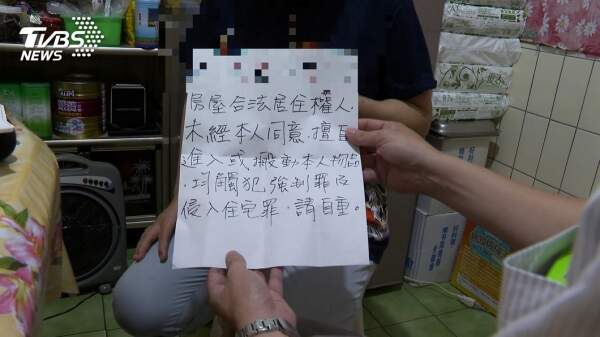 TVBS
NEWS
房屋合法居住權人.
未經本人同意.擅自
進入或搬動本人物品
.均觸犯強制罪及
侵入住宅罪.請自重。